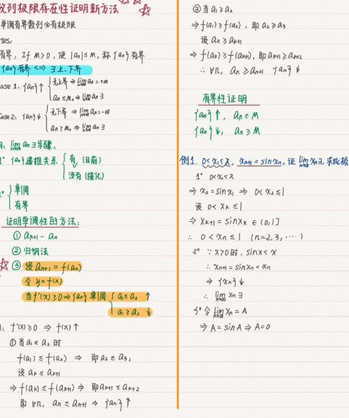 数列极限存在性证明新方法
单调有界数列必有极限
tes:
有界: 若 M>0, 使 |an|≤M, 称{an}有界
{an}有界 <=> ∃上、下界
ase 1: {an}↑ { 无上界 ⇒ lim an=+∞
an≤M, ⇒ lim an∃
ase 2: {an}↓ { 无下界 ⇒ lim an=-∞
an≥M, ⇒ lim an∃
lim an∃步骤.
1° {an}递推关系 { 有,
没有
{ 单调
有界
证明单调性的方法:
① an+1 - an
② 归纳法
③ 设 an+1 = f(an)
令 y=f(x)
当 f'(x)≥0 ⇒ {an}单调 { a1≤a2 ↑
a1≥a2 ↓
f'(x)≥0 ⇒ f(x)↑
①当 a1≤a2 时
f(a1)≤f(a2) ⇒ 即 a2≤a3,
设 ak≤ak+1
⇒ f(ak)≤f(ak+1) ⇒ 即 ak+1≤ak+2
即 ∀n, an≤an+1 ⇒ {an}↑
②当 a1≥a2
⇒ f(a1)≥f(a2), 即 a2≥a3
设 ak≥ak+1
⇒ f(ak)≥f(ak+1), 即 ak+1≥ak+2
∴ ∀n, an≥an+1 {an}↓
有界性证明
{an}↑, an≤M
{an}↓, an≥M
例1. xn+1=sinxn, 证 lim xn∃,
1° 0<x1<π
⇒ x2=sinx1 ⇒ 0<x2≤1
设 0<xk≤1
⇒ xk+1=sinxk∈(0,1]
∴ 0<xn≤1 (n=2,3,····)
2° ∵ x>0时, sinx<x
∴ xn+1=sinxn<xn
⇒ {xn}↓
∴ lim xn∃
3° 令 lim xn=A
⇒ A=sinA ⇒ A=0